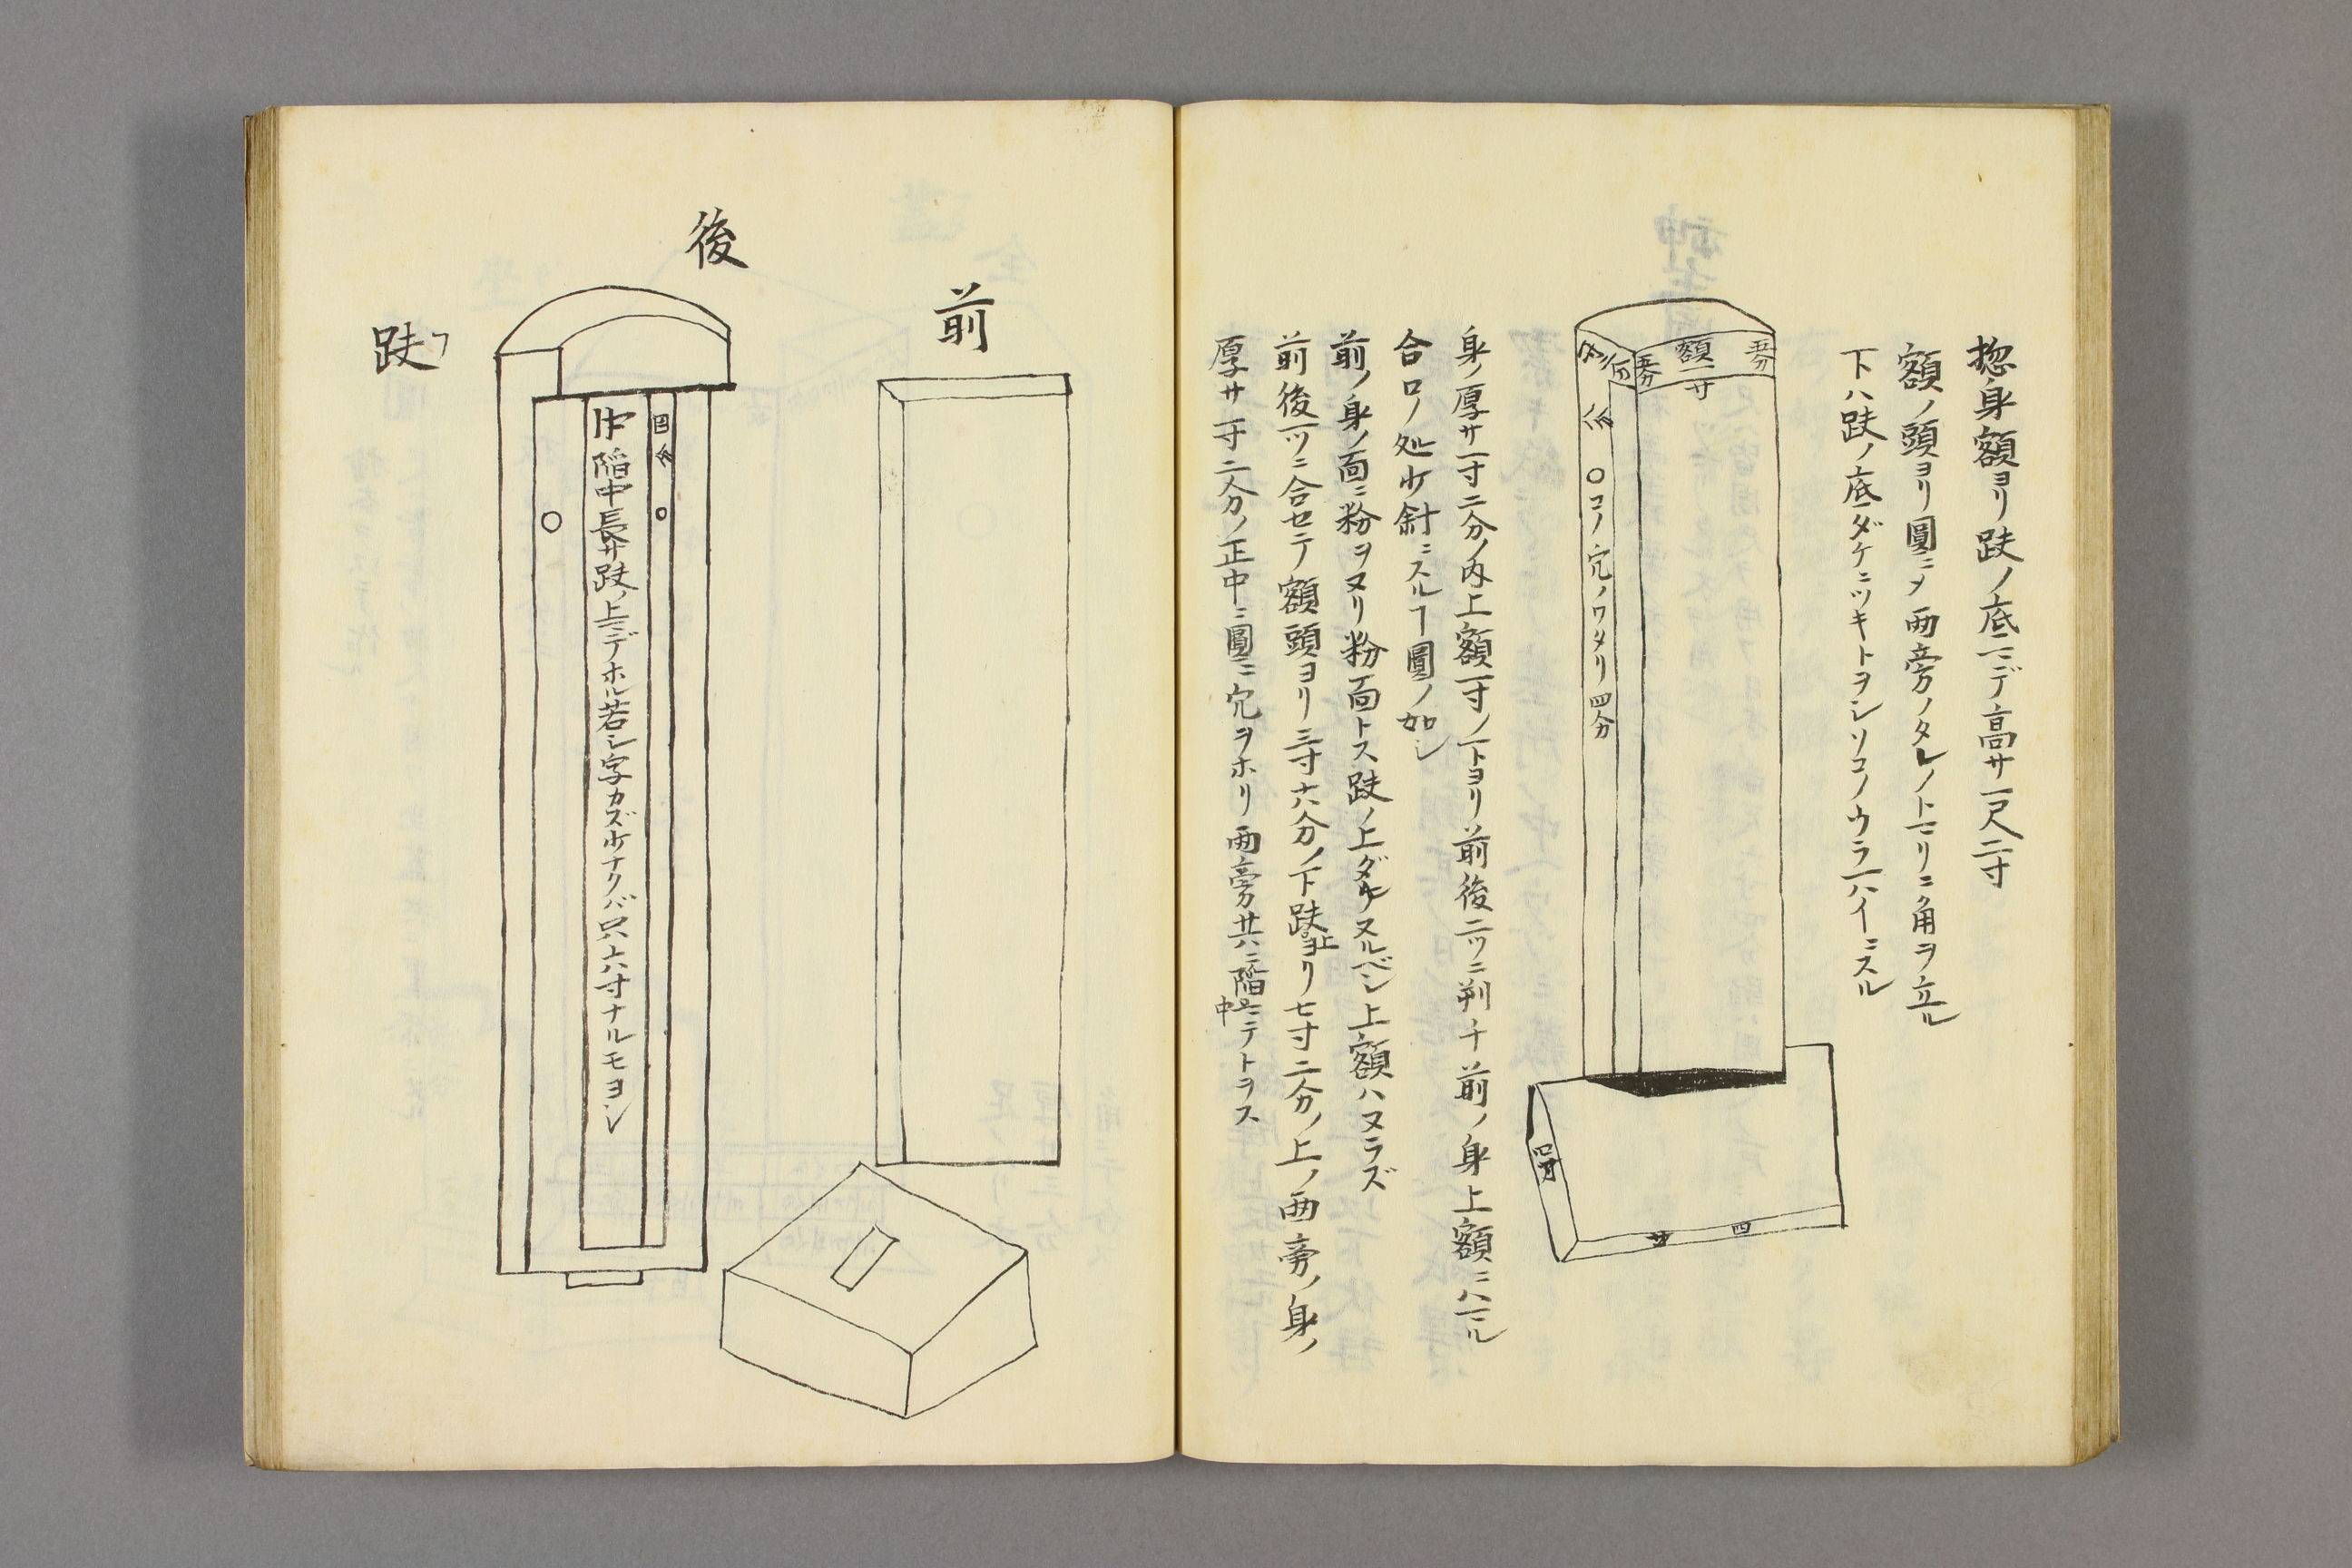 惣身額ヨリ趺ノ底マデ高サ一尺二寸
額ノ頭ヨリ圓ニメ両旁ノタレノトマリニ角ヲ立ル
下ハ趺ノ底ダケニツキトヲシソコノウラ一ハイニスル
額一寸
五分
五分
○コノ穴ノワタリ四分
四
寸
身ノ厚サ一寸二分ノ内上額一寸ノ下ヨリ前後二ツニ判チ前ノ身上額ニハマル
合口ノ処少斜ニスルヿ圓ノ如シ
前ノ身ノ面ニ粉ヲヌリ粉面トス趺ノ上ダケヌルベシ上額ハヌラズ
前後一ツニ合セテ額頭ヨリ三寸六分ノ下趺上ヨリ七寸二分ノ上ノ両旁ノ身ノ
厚サ一寸二分ノ正中ニ圓ニ穴ヲホリ両旁共ニ陷中ニテトヲス
前
後
陷中長サ趺ノ上マデホル若シ字カズ少ナクバ只六寸ナルモヨシ
趺